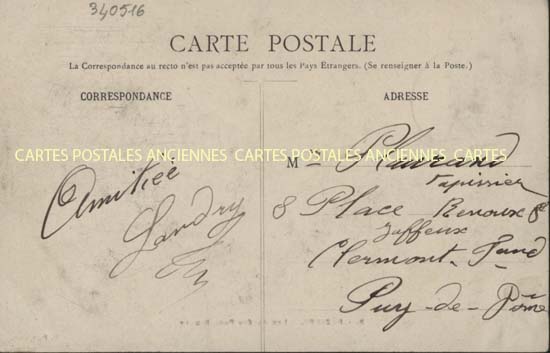 340516
CARTE POSTALE
La Correspondance au recto n'est pas acceptée par tous les Pays Étrangers. (Se renseigner à la Poste.)
CORRESPONDANCE
ADRESSE
CARTES POSTALES ANCIENNES CARTES POSTALES ANCIENNES
Amitiée
Landry
M
Tapissier
8 Place Renoux
Jaffeux
Clermont-Fand
Puy-de-Dôme